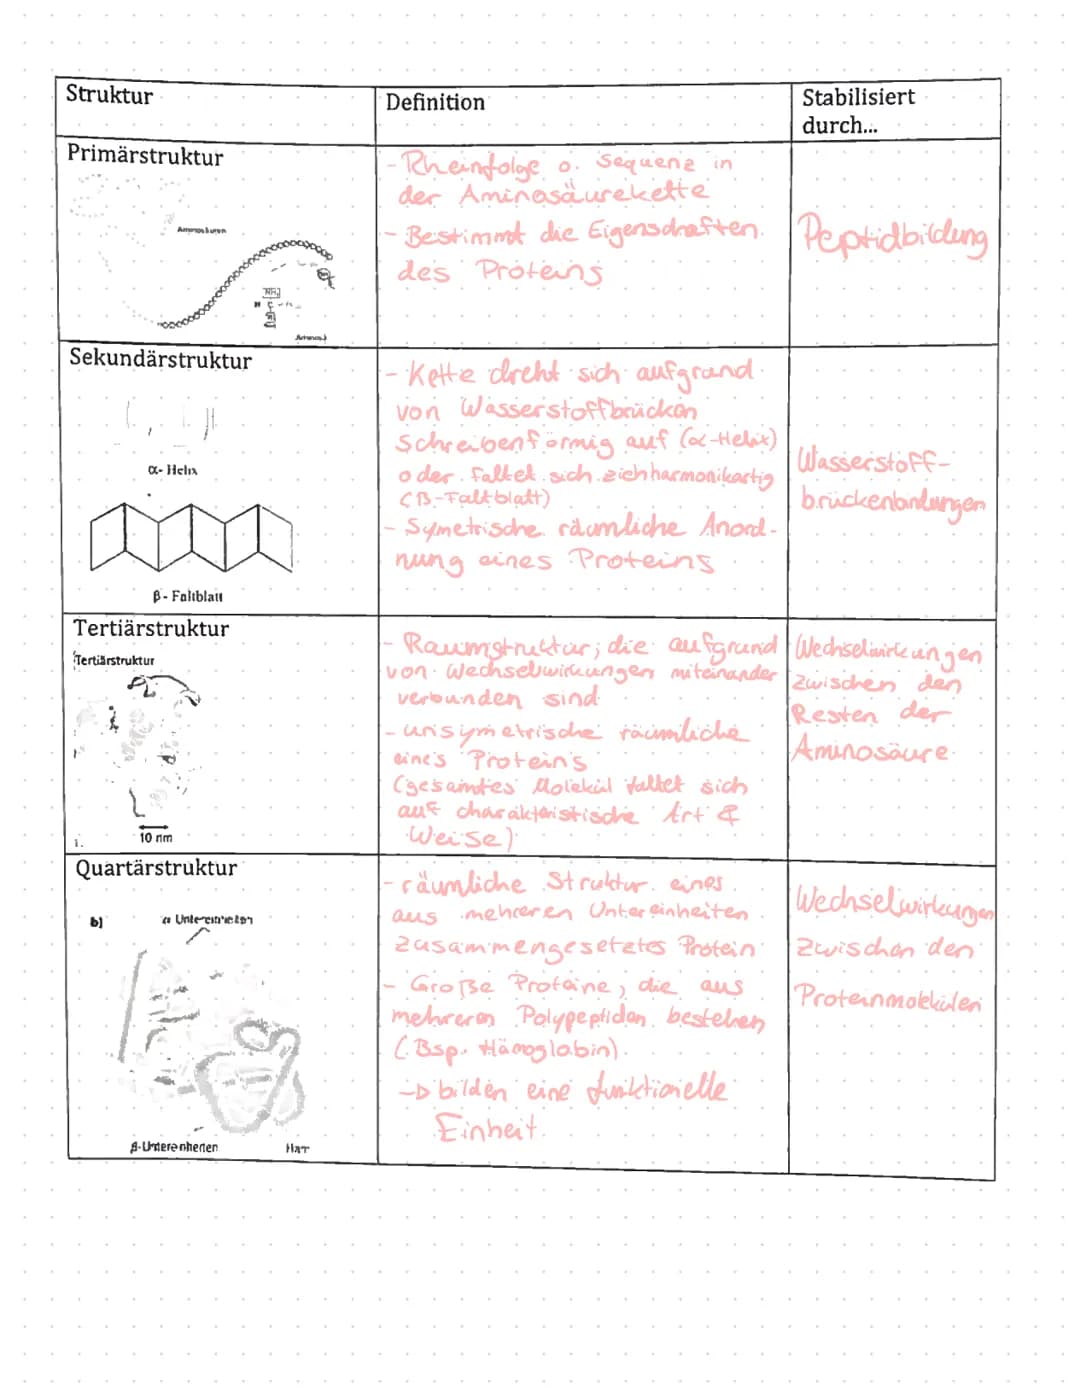 Struktur
Definition
Stabilisiert
durch...
Primärstruktur
Aminosäuren
NH₂
- Rheinfolge o. Sequenz in
der Aminosäurekette
- Bestimmt die Eigenschaften
des Proteins
Peptidbildung
Sekundärstruktur
α- Helix
β- Faltblatt
- Kette dreht sich aufgrund
von Wasserstoffbrücken
Schraubenförmig auf (α-Helix)
oder faltet sich ziehharmonikartig
(β-Faltblatt)
- Symetrische räumliche Anord-
nung eines Proteins
Wasserstoff-
brückenbindungen
Tertiärstruktur
Tertiärstruktur
10 nm
1.
- Raumstruktur, die aufgrund
von Wechselwirkungen miteinander
verbunden sind
- unsymetrische räumliche
eines Proteins
(gesamtes Molekül faltet sich
auf charakteristische Art &
Weise)
Wechselwirkungen
zwischen den
Resten der
Aminosäure
Quartärstruktur
b)
α Untereinheiten
β-Untereinheiten
- räumliche Struktur eines
aus mehreren Untereinheiten
zusammengesetztes Protein
- Große Proteine, die aus
mehreren Polypeptiden bestehen
(Bsp. Hämoglobin)
→ bilden eine funktionelle
Einheit
Wechselwirkungen
zwischen den
Proteinmolekülen